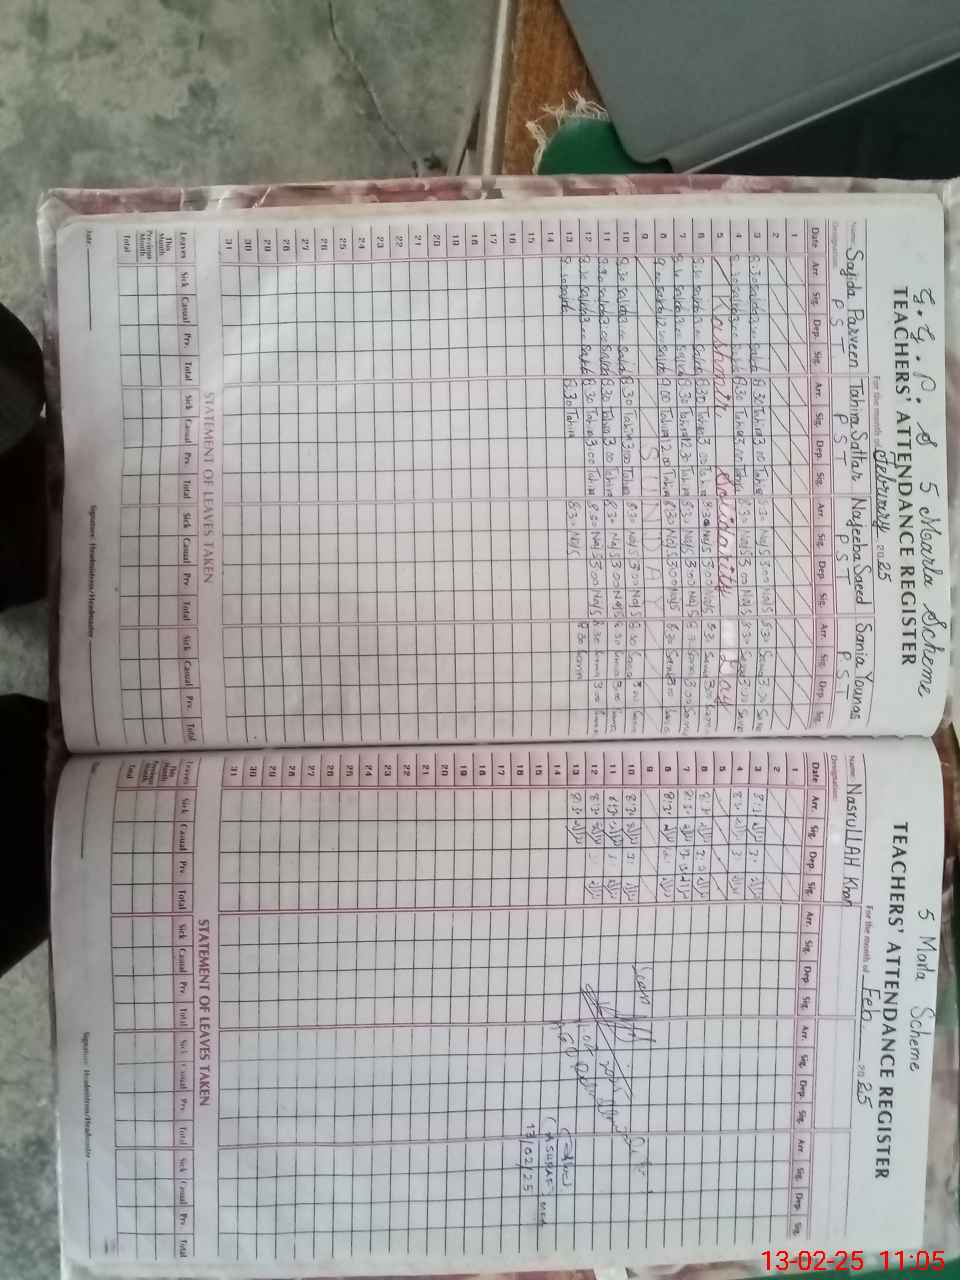 G. G. P. S 5 Marla Scheme
TEACHERS' ATTENDANCE REGISTER
For the month of February 2025
Name Sajida Parveen Tahira Sattar Najeeba Saeed Sania Younas
Designation P S T P S T P S T P S T
Date Arr. Sig. Dep. Sig. Arr. Sig. Dep. Sig. Arr. Sig. Dep. Sig. Arr. Sig. Dep. Sig.
1
2
3 8.30 Sajida 3.00 Sajida 8.30 Tahira 3.00 Tahira 8.30 Na/S 3.00 Na/S 8.30 Sania 3.00 Sania
4 8.30 Sajida 3.00 Sajida 8.30 Tahira 3.00 Tahira 8.30 Na/S 3.00 Na/S 8.30 Sania 3.00 Sania
5 Kashmir Solidarity Day
6 8.30 Sajida 3.00 Sajida 8.30 Tahira 3.00 Tahira 8.30 Na/S 3.00 Na/S 8.30 Sania 3.00 Sania
7 8.30 Sajida Sajida 8.30 Tahira 12.30 Tahira 8.30 Na/S 3.00 Na/S 8.30 Sania 3.00 Sania
8 9.00 Sajida 12.00 Sajida 9.00 Tahira 12.00 Tahira 8.30 Na/S 3.00 Na/S 8.30 Sania 3.00 Sania
9 S U N D A Y
10 8.30 Sajida 3.00 Sajida 8.30 Tahira 3.00 Tahira 8.30 Na/S 3.00 Na/S 8.30 Sania 3.00 Sania
11 8.30 Sajida 3.00 Sajida 8.30 Tahira 3.00 Tahira 8.30 Na/S 3.00 Na/S 8.30 Sania 3.00 Sania
12 8.30 Sajida 3.00 Sajida 8.30 Tahira 3.00 Tahira 8.30 Na/S 3.00 Na/S 8.30 Sania 3.00 Sania
13 8.30 Sajida 8.30 Tahira 8.30 Na/S 8.30 Sania
14
15
16
17
18
19
20
21
22
23
24
25
26
27
28
29
30
31
STATEMENT OF LEAVES TAKEN
Leaves Sick Casual Prv. Total Sick Casual Prv. Total Sick Casual Prv. Total Sick Casual Prv. Total
This Month
Previous Month
Total
Date: Signature: Headmistress/Headmaster
5 Marla Scheme
TEACHERS' ATTENDANCE REGISTER
For the month of Feb. 2025
Name: Nasrullah Khan
Designation:
Date Arr. Sig. Dep. Sig. Arr. Sig. Dep. Sig. Arr. Sig. Dep. Sig. Arr. Sig. Dep. Sig.
1
2
3
4
5
6
7
8
9
10
11
12
13
14
15
16
17
18
19
20
21
22
23
24
25
26
27
28
29
30
31
13/02/25
STATEMENT OF LEAVES TAKEN
Leaves Sick Casual Prv. Total Sick Casual Prv. Total Sick Casual Prv. Total Sick Casual Prv. Total
This Month
Previous Month
Total
Signature: Headmistress/Headmaster
13-02-25 11:05